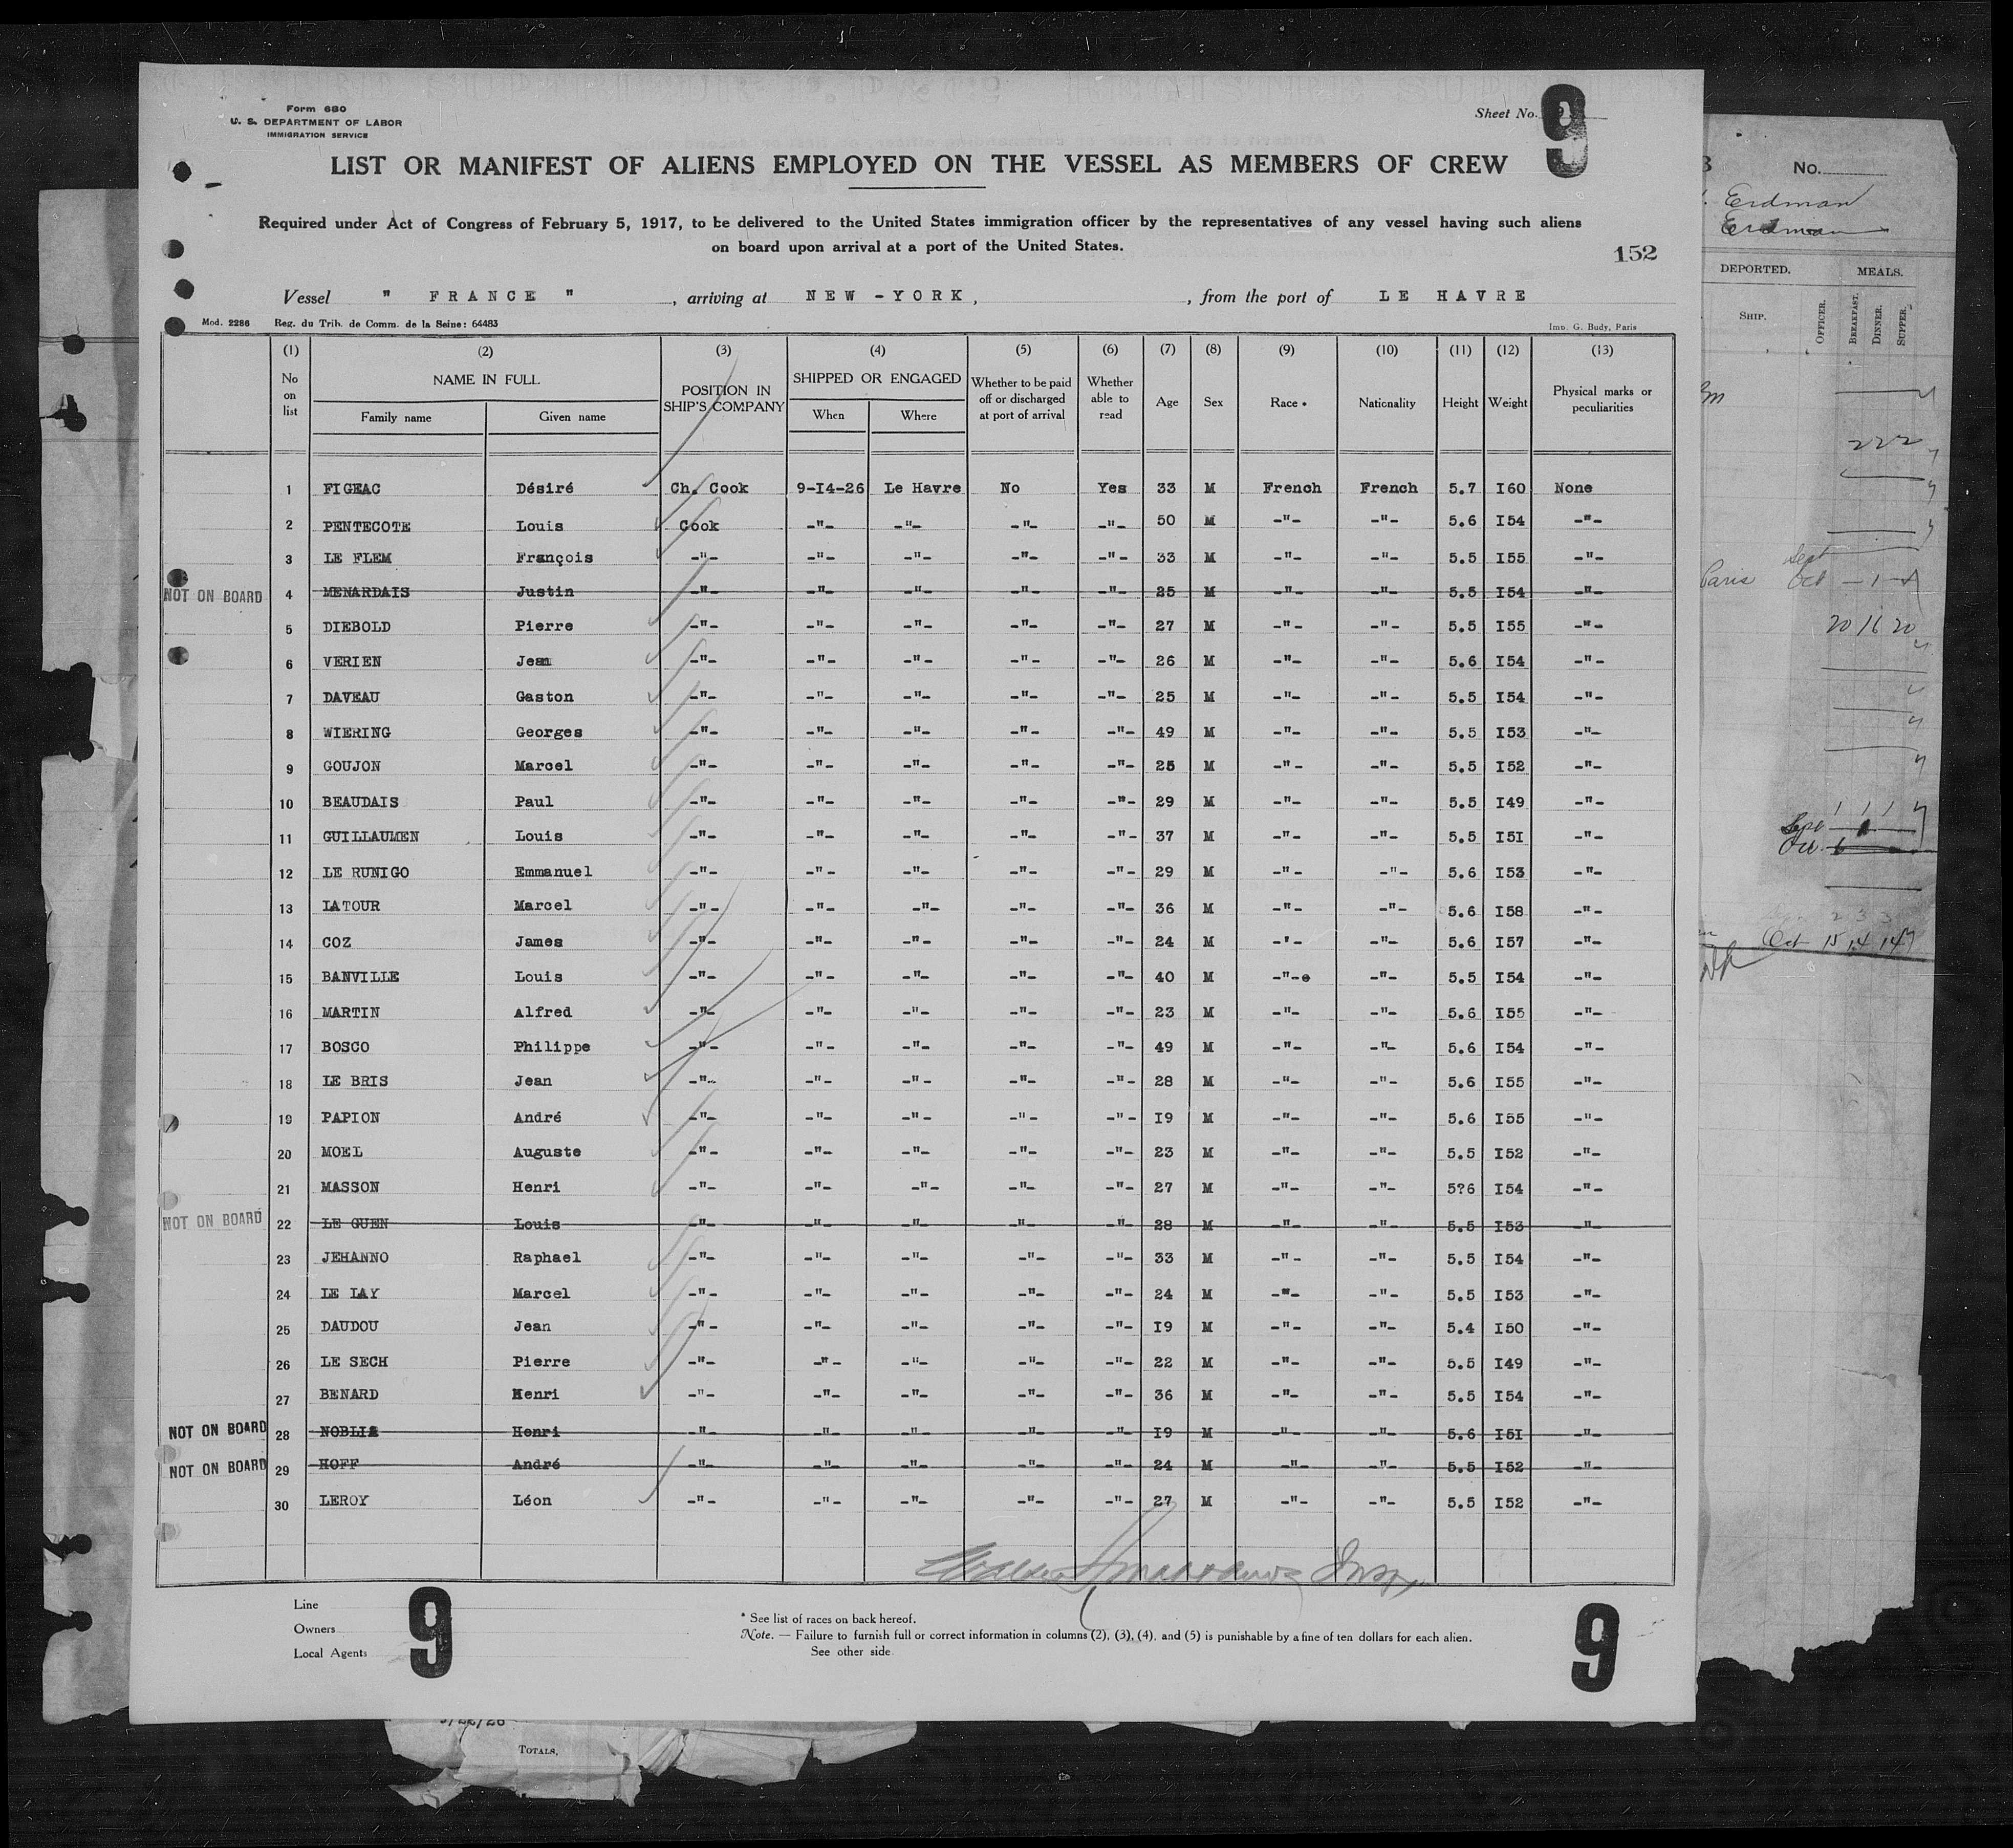 Form 680
U. S. DEPARTMENT OF LABOR
IMMIGRATION SERVICE
Sheet No. 9
LIST OR MANIFEST OF ALIENS EMPLOYED ON THE VESSEL AS MEMBERS OF CREW
Required under Act of Congress of February 5, 1917, to be delivered to the United States immigration officer by the representatives of any vessel having such aliens
on board upon arrival at a port of the United States.
152
Vessel " FRANCE " , arriving at NEW-YORK, , from the port of LE HAVRE
Mod. 2286 Reg. du Trib. de Comm. de la Seine: 64483 Imp. G. Budy, Paris
(1) (2) (3) (4) (5) (6) (7) (8) (9) (10) (11) (12) (13)
No on list NAME IN FULL Family name Given name POSITION IN SHIP'S COMPANY SHIPPED OR ENGAGED When Where Whether to be paid off or discharged at port of arrival Whether able to read Age Sex Race * Nationality Height Weight Physical marks or peculiarities
1 FIGEAC Désiré Ch. Cook 9-I4-26 Le Havre No Yes 33 M French French 5.7 I60 None
2 PENTECOTE Louis Cook -"- -"- -"- -"- 50 M -"- -"- 5.6 I54 -"-
3 LE FLEM François -"- -"- -"- -"- -"- 33 M -"- -"- 5.5 I55 -"-
NOT ON BOARD 4 MENARDAIS Justin -"- -"- -"- -"- -"- 25 M -"- -"- 5.5 I54 -"-
5 DIEBOLD Pierre -"- -"- -"- -"- -"- 27 M -"- -"- 5.5 I55 -"-
6 VERIEN Jean -"- -"- -"- -"- -"- 26 M -"- -"- 5.6 I54 -"-
7 DAVEAU Gaston -"- -"- -"- -"- -"- 25 M -"- -"- 5.5 I54 -"-
8 WIERING Georges -"- -"- -"- -"- -"- 49 M -"- -"- 5.5 I53 -"-
9 GOUJON Marcel -"- -"- -"- -"- -"- 25 M -"- -"- 5.5 I52 -"-
10 BEAUDAIS Paul -"- -"- -"- -"- -"- 29 M -"- -"- 5.5 I49 -"-
11 GUILLAUMEN Louis -"- -"- -"- -"- -"- 37 M -"- -"- 5.5 I5I -"-
12 LE RUNIGO Emmanuel -"- -"- -"- -"- -"- 29 M -"- -"- 5.6 I53 -"-
13 LATOUR Marcel -"- -"- -"- -"- -"- 36 M -"- -"- 5.6 I58 -"-
14 COZ James -"- -"- -"- -"- -"- 24 M -'- -"- 5.6 I57 -"-
15 BANVILLE Louis -"- -"- -"- -"- -"- 40 M -"- -"- 5.5 I54 -"-
16 MARTIN Alfred -"- -"- -"- -"- -"- 23 M -"- -"- 5.6 I55 -"-
17 BOSCO Philippe -"- -"- -"- -"- -"- 49 M -"- -"- 5.6 I54 -"-
18 LE BRIS Jean -"- -"- -"- -"- -"- 28 M -"- -"- 5.6 I55 -"-
19 PAPION André -"- -"- -"- -"- -"- I9 M -"- -"- 5.6 I55 -"-
20 MOEL Auguste -"- -"- -"- -"- -"- 23 M -"- -"- 5.5 I52 -"-
21 MASSON Henri -"- -"- -"- -"- -"- 27 M -"- -"- 5?6 I54 -"-
NOT ON BOARD 22 LE GUEN Louis -"- -"- -"- -"- -"- 28 M -"- -"- 5.5 I53 -"-
23 JEHANNO Raphael -"- -"- -"- -"- -"- 33 M -"- -"- 5.5 I54 -"-
24 LE LAY Marcel -"- -"- -"- -"- -"- 24 M -"- -"- 5.5 I53 -"-
25 DAUDOU Jean -"- -"- -"- -"- -"- I9 M -"- -"- 5.4 I50 -"-
26 LE SECH Pierre -"- -"- -"- -"- -"- 22 M -"- -"- 5.5 I49 -"-
27 BENARD Henri -"- -"- -"- -"- -"- 36 M -"- -"- 5.5 I54 -"-
NOT ON BOARD 28 NOBLIA Henri -"- -"- -"- -"- -"- I9 M -"- -"- 5.6 I5I -"-
NOT ON BOARD 29 HOFF André -"- -"- -"- -"- -"- 24 M -"- -"- 5.5 I52 -"-
30 LEROY Léon -"- -"- -"- -"- -"- 27 M -"- -"- 5.5 I52 -"-
Line
Owners
Local Agents
9
* See list of races on back hereof.
Note. — Failure to furnish full or correct information in columns (2), (3), (4), and (5) is punishable by a fine of ten dollars for each alien.
See other side
9
TOTALS,
No.
Erdman
Erdman
DEPORTED. MEALS.
SHIP. OFFICER. BREAKFAST. DINNER. SUPPER.
222
Paris Sept Oct -1-
20 16 20
1 1 1
2 3 3
Oct 15 14 14